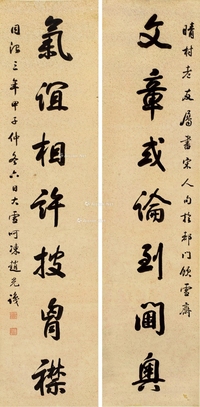 晴村老友屬書宋人句於門雪齋
文章或論到閫奧
氣誼相許披胷襟
同治三年甲子仲冬六日大雪呵凍趙光識